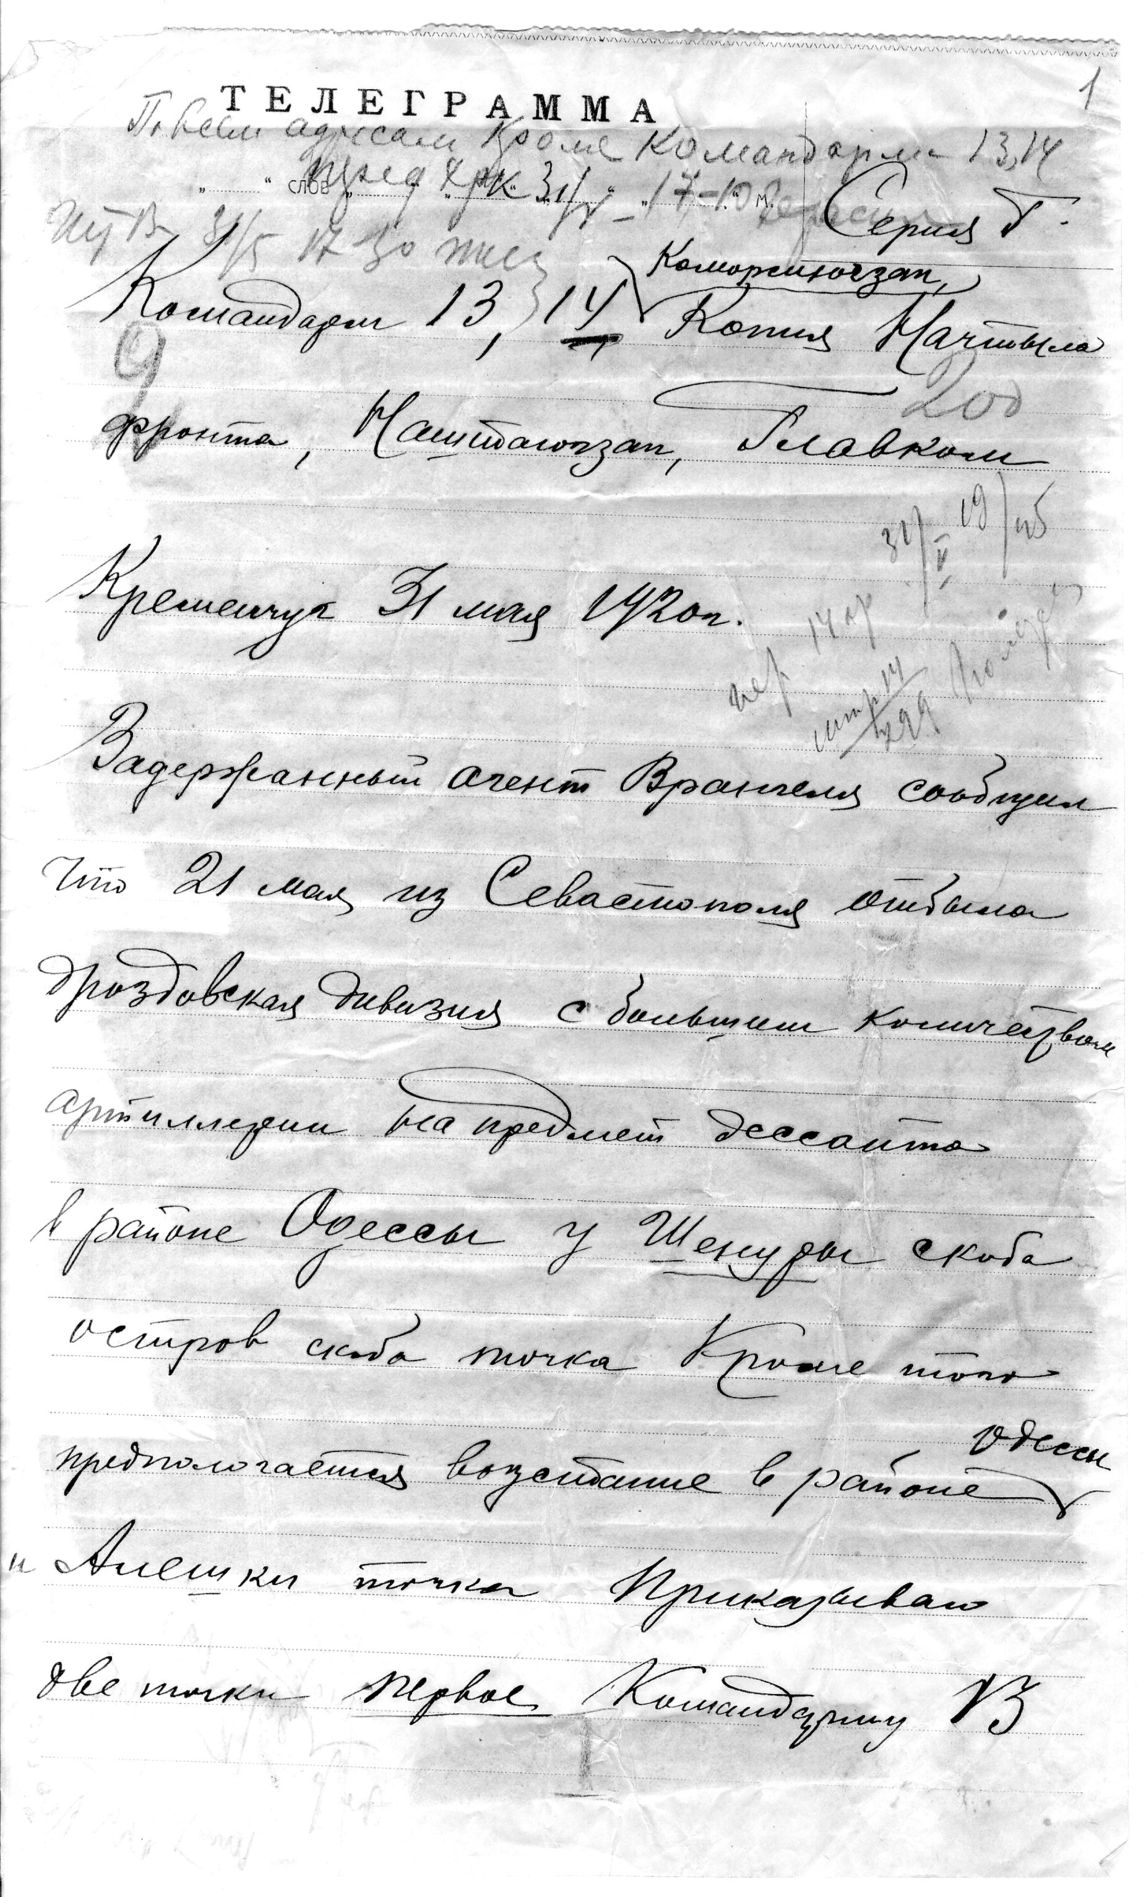 1
ТЕЛЕГРАММА
По всем адресам кроме Командарм 13,14
слов 31/V 17-10
31/5 17 30
Серия Г.
Коморсиюгзап,
Командарм 13, 14 Копия Начтыла
9
200
фронта, Наштаюгзап, Главком
31/V 19/45
Кременчуг 31 мая 1920г.
14
Задержанный агент Врангеля сообщил
что 21 мая из Севастополя отбыла
дроздовская дивизия с большим количеством
артиллерии на предмет дессанта
в районе Одессы у Шенуры скоба
остров скоба точка Кроме того
Одессы
предпологается возстание в районе
и Алешки точка Приказываю
две точки первое Командарму 13
1